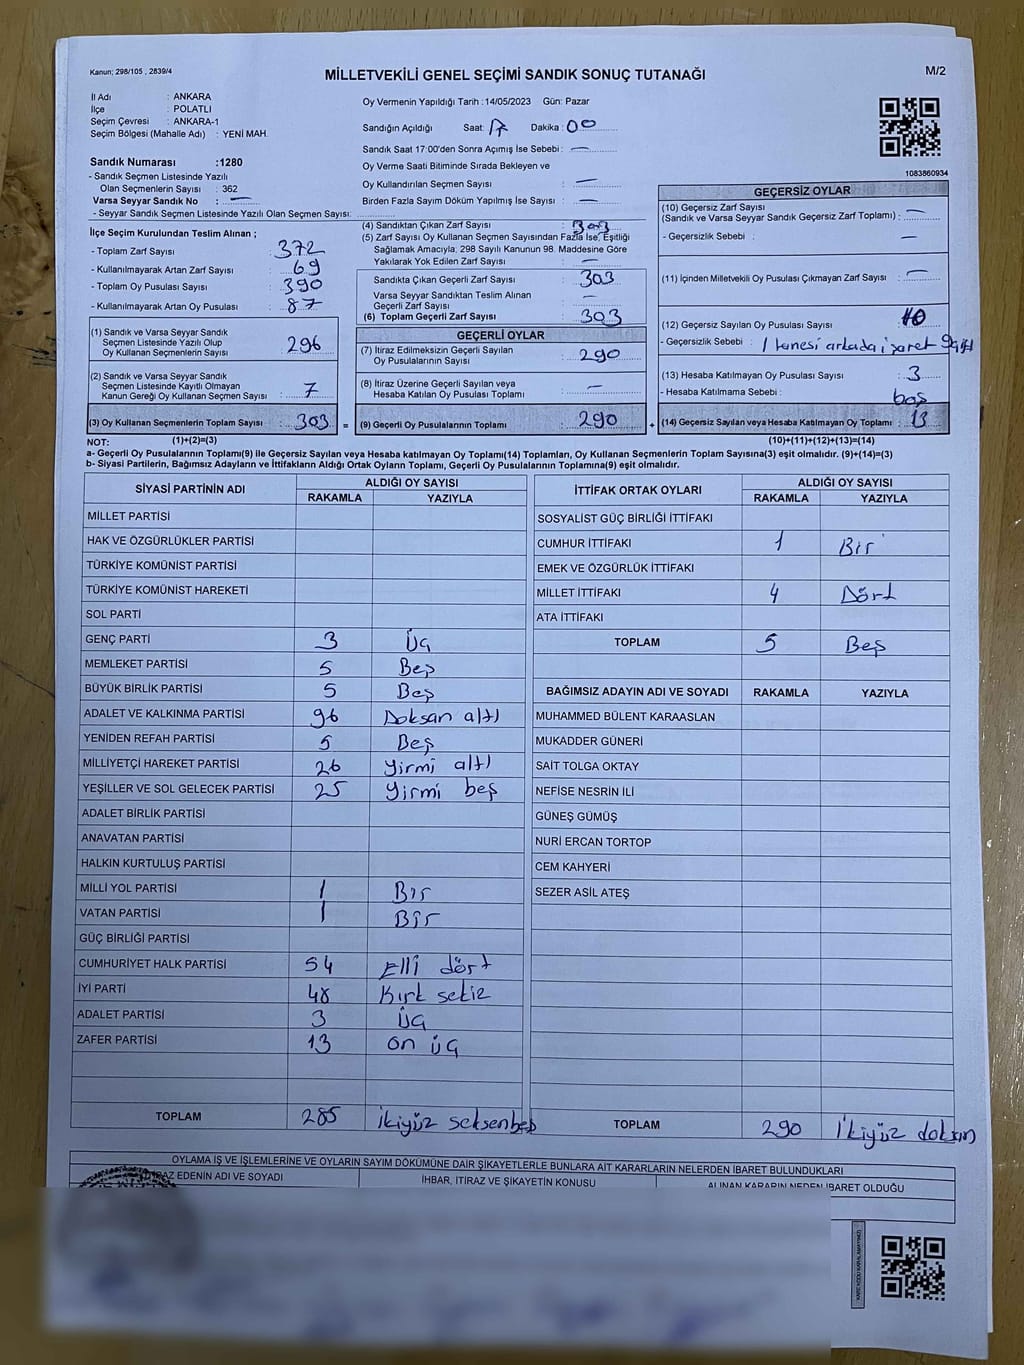 Kanun; 298/105 , 2839/4
MİLLETVEKİLİ GENEL SEÇİMİ SANDIK SONUÇ TUTANAĞI
M/2
İl Adı : ANKARA
İlçe : POLATLI
Seçim Çevresi : ANKARA-1
Seçim Bölgesi (Mahalle Adı) : YENİ MAH.
Sandık Numarası :1280
- Sandık Seçmen Listesinde Yazılı
Olan Seçmenlerin Sayısı : 362
Varsa Seyyar Sandık No : —
- Seyyar Sandık Seçmen Listesinde Yazılı Olan Seçmen Sayısı:
Oy Vermenin Yapıldığı Tarih :14/05/2023 Gün: Pazar
Sandığın Açıldığı Saat: 17 Dakika : 00
Sandık Saat 17:00'den Sonra Açımış İse Sebebi : —
Oy Verme Saati Bitiminde Sırada Bekleyen ve
Oy Kullandırılan Seçmen Sayısı : —
Birden Fazla Sayım Döküm Yapılmış İse Sayısı : —
1083860934
İlçe Seçim Kurulundan Teslim Alınan ;
- Toplam Zarf Sayısı : 372
- Kullanılmayarak Artan Zarf Sayısı : 69
- Toplam Oy Pusulası Sayısı : 390
- Kullanılmayarak Artan Oy Pusulası : 87
(1) Sandık ve Varsa Seyyar Sandık
Seçmen Listesinde Yazılı Olup
Oy Kullanan Seçmenlerin Sayısı : 296
(2) Sandık ve Varsa Seyyar Sandık
Seçmen Listesinde Kayıtlı Olmayan
Kanun Gereği Oy Kullanan Seçmen Sayısı : 7
(3) Oy Kullanan Seçmenlerin Toplam Sayısı : 303 =
(4) Sandıktan Çıkan Zarf Sayısı : 303
(5) Zarf Sayısı Oy Kullanan Seçmen Sayısından Fazla İse, Eşitliği
Sağlamak Amacıyla; 298 Sayılı Kanunun 98. Maddesine Göre
Yakılarak Yok Edilen Zarf Sayısı : —
Sandıkta Çıkan Geçerli Zarf Sayısı : 303
Varsa Seyyar Sandıktan Teslim Alınan
Geçerli Zarf Sayısı : —
(6) Toplam Geçerli Zarf Sayısı : 303
GEÇERLİ OYLAR
(7) İtiraz Edilmeksizin Geçerli Sayılan
Oy Pusulalarının Sayısı : 290
(8) İtiraz Üzerine Geçerli Sayılan veya
Hesaba Katılan Oy Pusulaları Toplamı : —
(9) Geçerli Oy Pusulalarının Toplamı : 290 +
GEÇERSİZ OYLAR
(10) Geçersiz Zarf Sayısı
(Sandık ve Varsa Seyyar Sandık Geçersiz Zarf Toplamı) : —
- Geçersizlik Sebebi : —
(11) İçinden Milletvekili Oy Pusulası Çıkmayan Zarf Sayısı : —
(12) Geçersiz Sayılan Oy Pusulası Sayısı : 10
- Geçersizlik Sebebi : 1 tanesi arkada işaret
(13) Hesaba Katılmayan Oy Pusulası Sayısı : 3
- Hesaba Katılmama Sebebi : boş
(14) Geçersiz Sayılan veya Hesaba Katılmayan Oy Toplamı : 13
NOT: (1)+(2)=(3) (10)+(11)+(12)+(13)=(14)
a- Geçerli Oy Pusulalarının Toplamı(9) ile Geçersiz Sayılan veya Hesaba katılmayan Oy Toplamı(14) Toplamları, Oy Kullanan Seçmenlerin Toplam Sayısına(3) eşit olmalıdır. (9)+(14)=(3)
b- Siyasi Partilerin, Bağımsız Adayların ve İttifakların Aldığı Ortak Oyların Toplamı, Geçerli Oy Pusulalarının Toplamına(9) eşit olmalıdır.
SİYASİ PARTİNİN ADI ALDIĞI OY SAYISI
RAKAMLA YAZIYLA
MİLLET PARTİSİ
HAK VE ÖZGÜRLÜKLER PARTİSİ
TÜRKİYE KOMÜNİST PARTİSİ
TÜRKİYE KOMÜNİST HAREKETİ
SOL PARTİ
GENÇ PARTİ 3 Üç
MEMLEKET PARTİSİ 5 Beş
BÜYÜK BİRLİK PARTİSİ 5 Beş
ADALET VE KALKINMA PARTİSİ 96 Doksan altı
YENİDEN REFAH PARTİSİ 5 Beş
MİLLİYETÇİ HAREKET PARTİSİ 26 Yirmi altı
YEŞİLLER VE SOL GELECEK PARTİSİ 25 Yirmi beş
ADALET BİRLİK PARTİSİ
ANAVATAN PARTİSİ
HALKIN KURTULUŞ PARTİSİ
MİLLİ YOL PARTİSİ 1 Bir
VATAN PARTİSİ 1 Bir
GÜÇ BİRLİĞİ PARTİSİ
CUMHURİYET HALK PARTİSİ 54 Elli dört
İYİ PARTİ 48 Kırk sekiz
ADALET PARTİSİ 3 Üç
ZAFER PARTİSİ 13 on üç
TOPLAM 285 İkiyüz seksenbeş
İTTİFAK ORTAK OYLARI ALDIĞI OY SAYISI
RAKAMLA YAZIYLA
SOSYALİST GÜÇ BİRLİĞİ İTTİFAKI
CUMHUR İTTİFAKI 1 Bir
EMEK VE ÖZGÜRLÜK İTTİFAKI
MİLLET İTTİFAKI 4 Dört
ATA İTTİFAKI
TOPLAM 5 Beş
BAĞIMSIZ ADAYIN ADI VE SOYADI RAKAMLA YAZIYLA
MUHAMMED BÜLENT KARAASLAN
MUKADDER GÜNERİ
SAİT TOLGA OKTAY
NEFİSE NESRİN İLİ
GÜNEŞ GÜMÜŞ
NURİ ERCAN TORTOP
CEM KAHYERİ
SEZER ASİL ATEŞ
TOPLAM 290 İkiyüz doksan
OYLAMA İŞ VE İŞLEMLERİNE VE OYLARIN SAYIM DÖKÜMÜNE DAİR ŞİKAYETLERLE BUNLARA AİT KARARLARIN NELERDEN İBARET BULUNDUKLARI
EDENİN ADI VE SOYADI İHBAR, İTİRAZ VE ŞİKAYETİN KONUSU ALINAN KARARIN NEDEN İBARET OLDUĞU